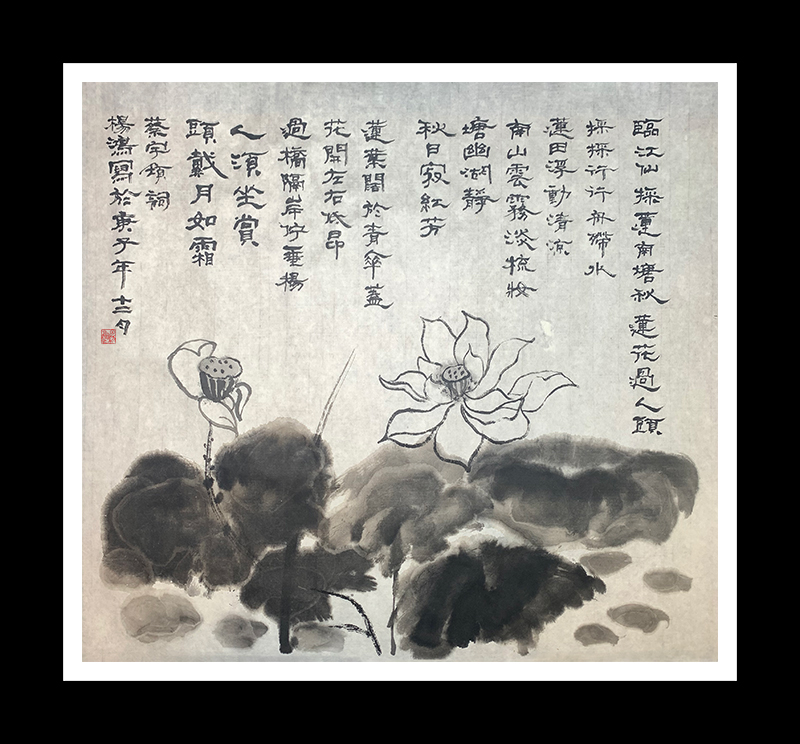 臨江仙 採蓮南塘秋 蓮花過人頭
採採行行舟帶水
蓮田浮動清涼
南山雲霧淡梳妝
塘幽湖靜
秋日寂紅芳
蓮葉闊於青傘蓋
花開左右低昂
過橋隔岸佇垂楊
人須坐賞
頭戴月如霜
蔡宇 詞
楊 寫於庚子年十二月